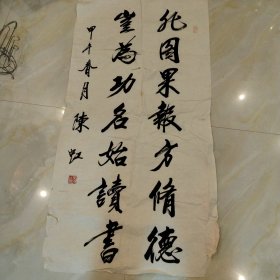 非因果報方脩德
豈為功名始讀書
甲午春月 陳虹